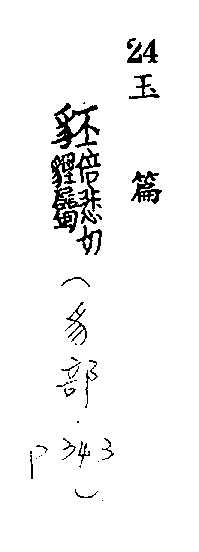 24
玉篇
豾倍悲切
貍屬
(豸部.
P343)